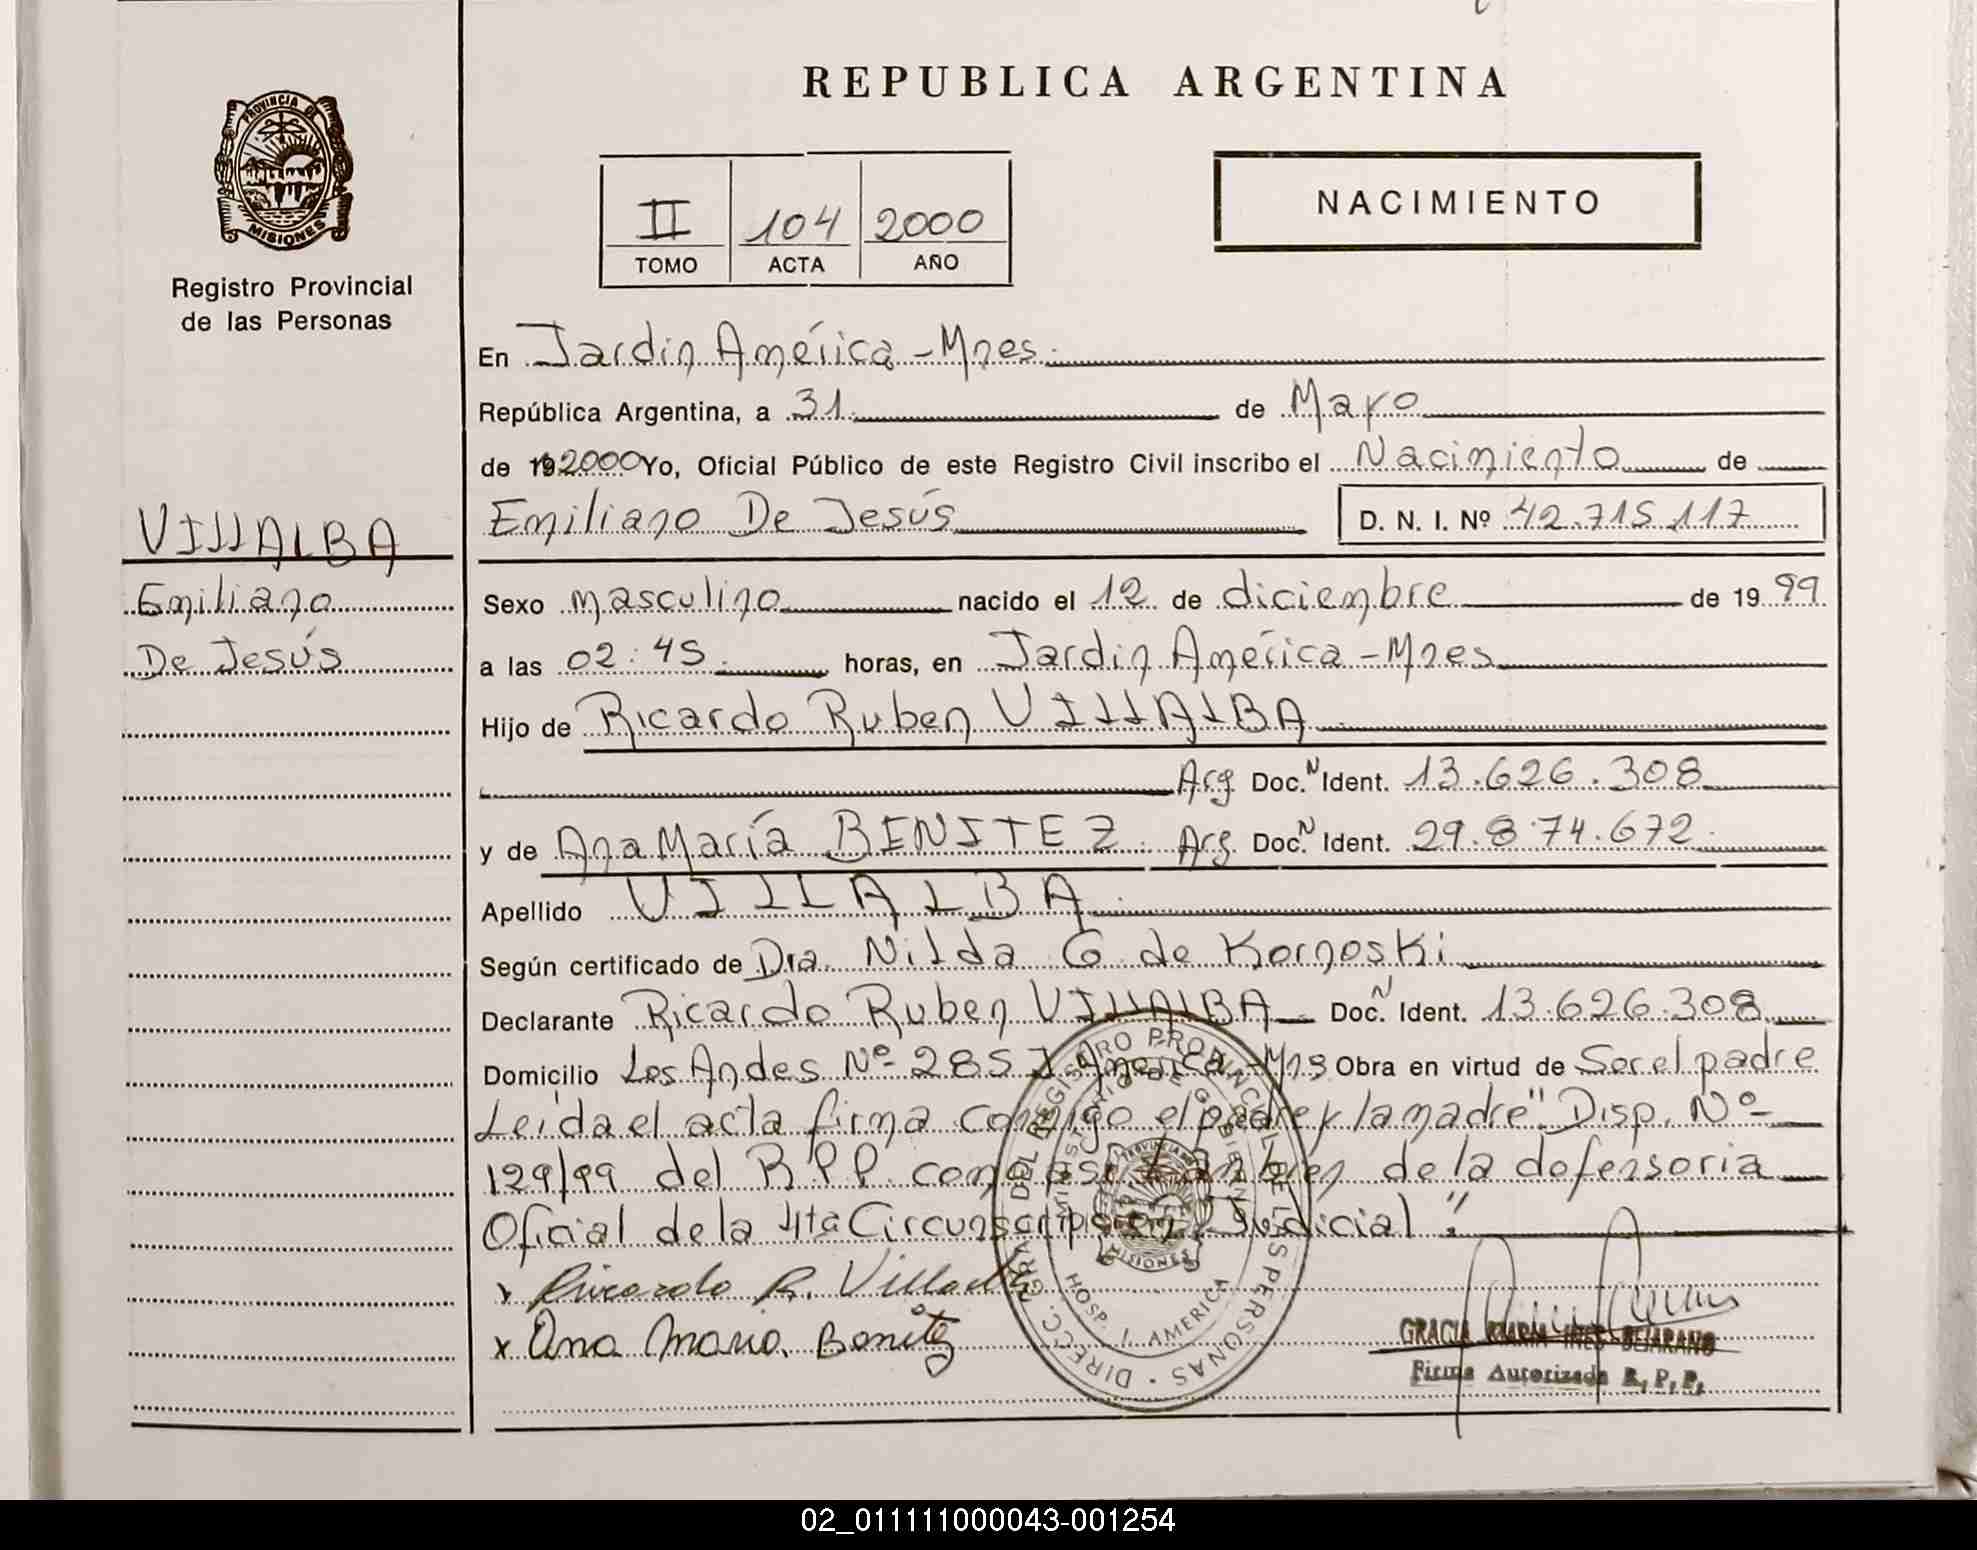 REPUBLICA ARGENTINA
PROVINCIA DE
MISIONES
Registro Provincial
de las Personas
NACIMIENTO
II 104 2000
TOMO ACTA AÑO
En Jardín América - Mnes.
República Argentina, a 31 de Mayo
de 19 2000 Yo, Oficial Público de este Registro Civil inscribo el Nacimiento de
Emiliano De Jesús D. N. I. Nº 42.715.117
VILLALBA
Emiliano
De Jesús
Sexo masculino nacido el 12 de diciembre de 19 99
a las 02:45 horas, en Jardín América - Mnes
Hijo de Ricardo Ruben VILLALBA
Arg Doc. N Ident. 13.626.308
y de Ana María BENITEZ Arg. Doc. N Ident. 29.874.672
Apellido VILLALBA
Según certificado de Dra. Nilda G de Kornoski
Declarante Ricardo Ruben VILLALBA Doc. N Ident. 13.626.308
Domicilio Los Andes Nº 285 J. América - Mns Obra en virtud de Ser el padre
Leída el acta firma conmigo el padre y la madre" Disp. Nº
129/99 del R P P. como así también de la defensoria
Oficial de la 4ta Circunscripción Judicial"
x Ricardo R. Villalba
x Ana Maria Benitez
DIRECC. GRAL. DEL REGISTRO PROVINCIAL DE LAS PERSONAS
MINISTERIO DE GOBIERNO
PROVINCIA DE
MISIONES
HOSP. J. AMERICA
GRACIA MARIA INES BEJARANO
Firma Autorizada R. P. P.
02_011111000043-001254